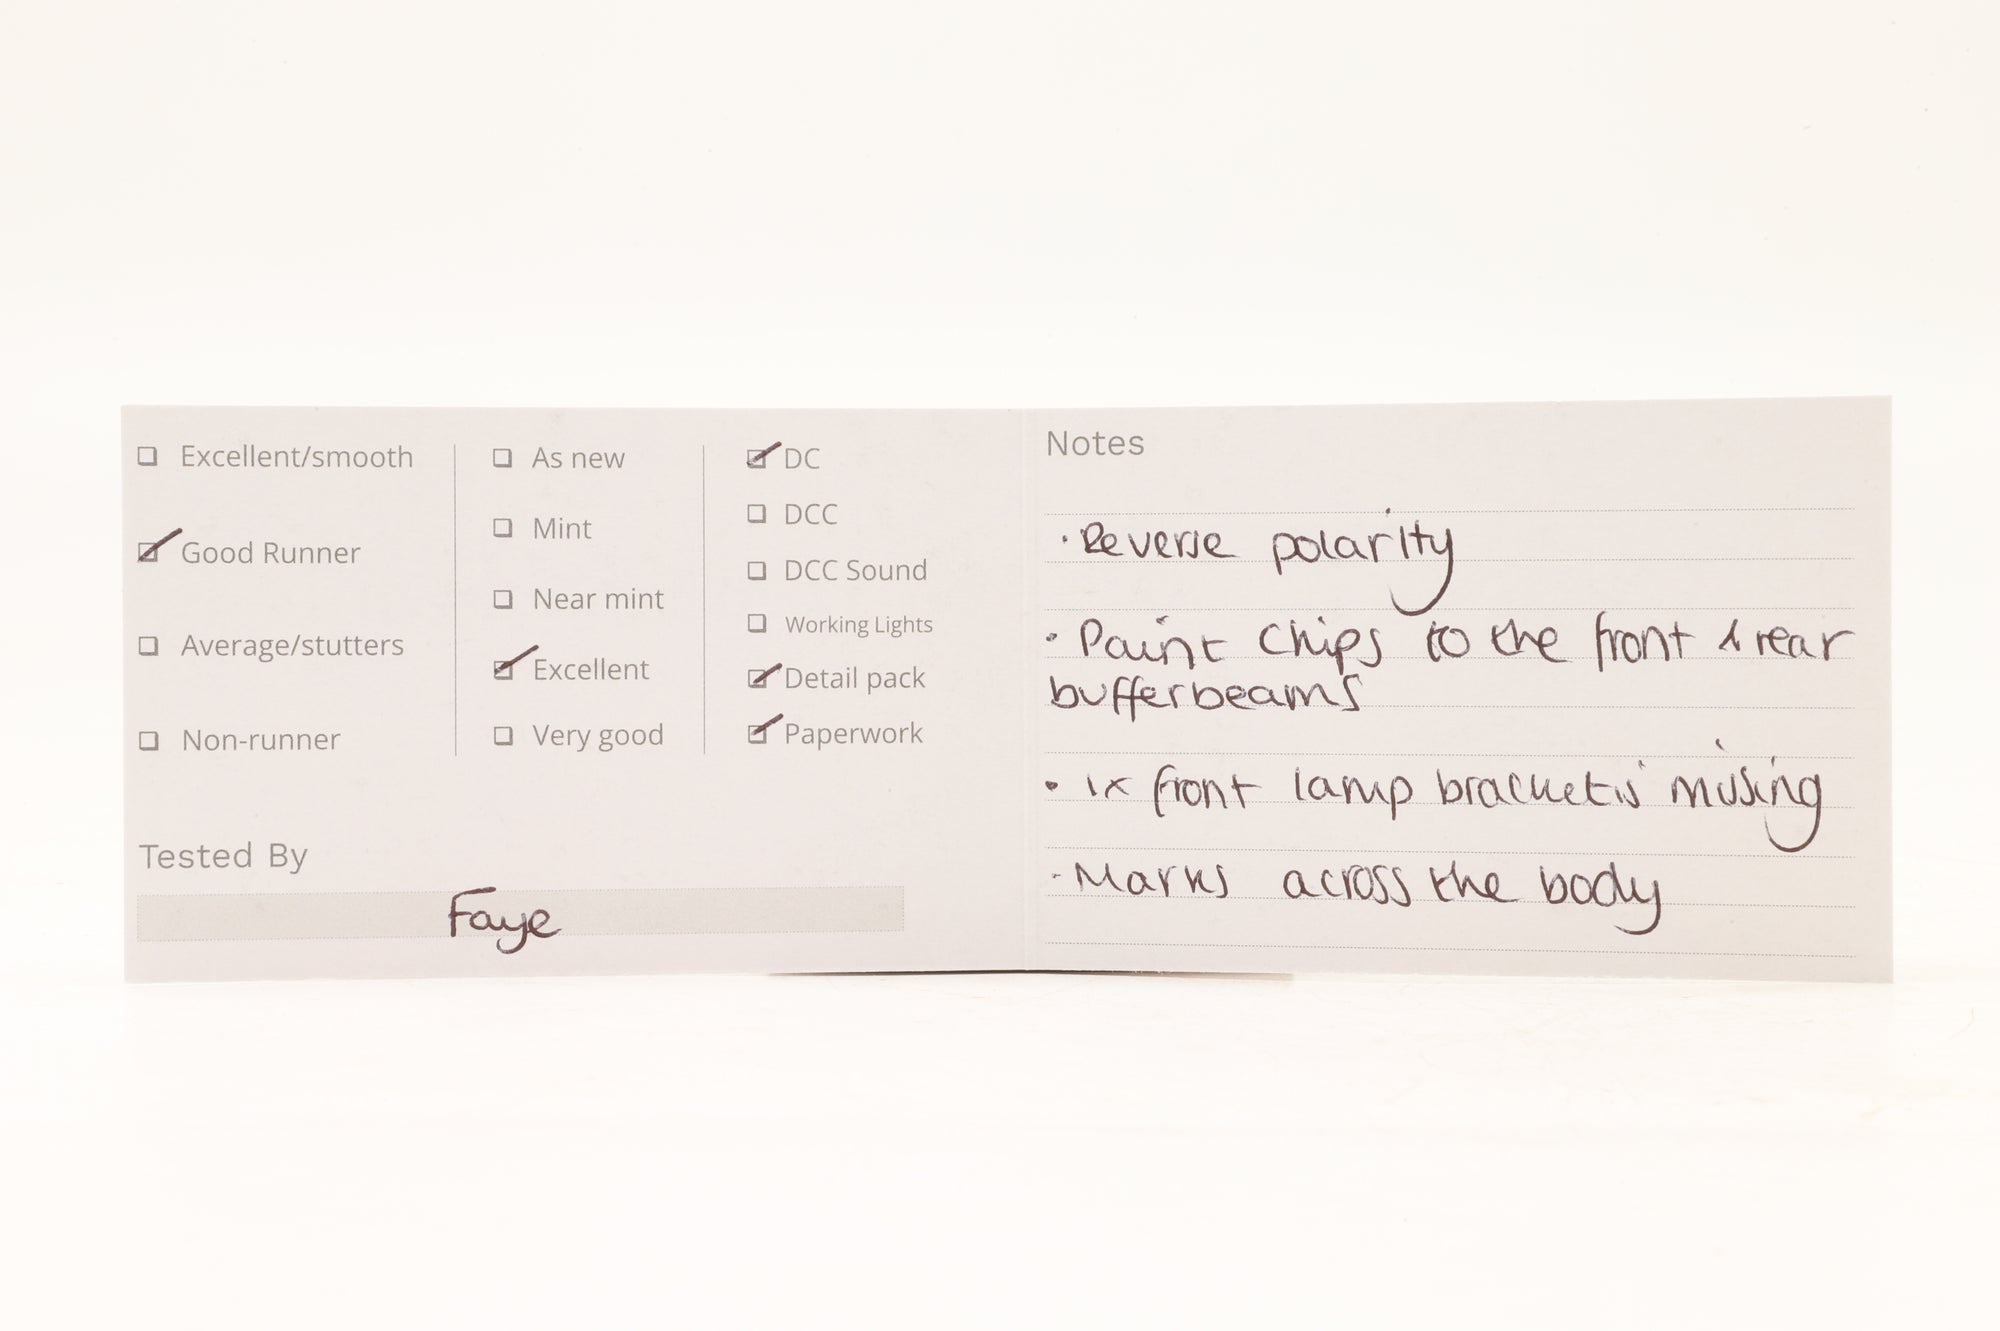 ☐ Excellent/smooth
☑ Good Runner
☐ Average/stutters
☐ Non-runner
☐ As new
☐ Mint
☐ Near mint
☑ Excellent
☐ Very good
☑ DC
☐ DCC
☐ DCC Sound
☐ Working Lights
☑ Detail pack
☑ Paperwork
Tested By
Faye
Notes
· Reverse polarity
· Paint chips to the front & rear
bufferbeams
· 1x front lamp bracket is missing
· Marks across the body